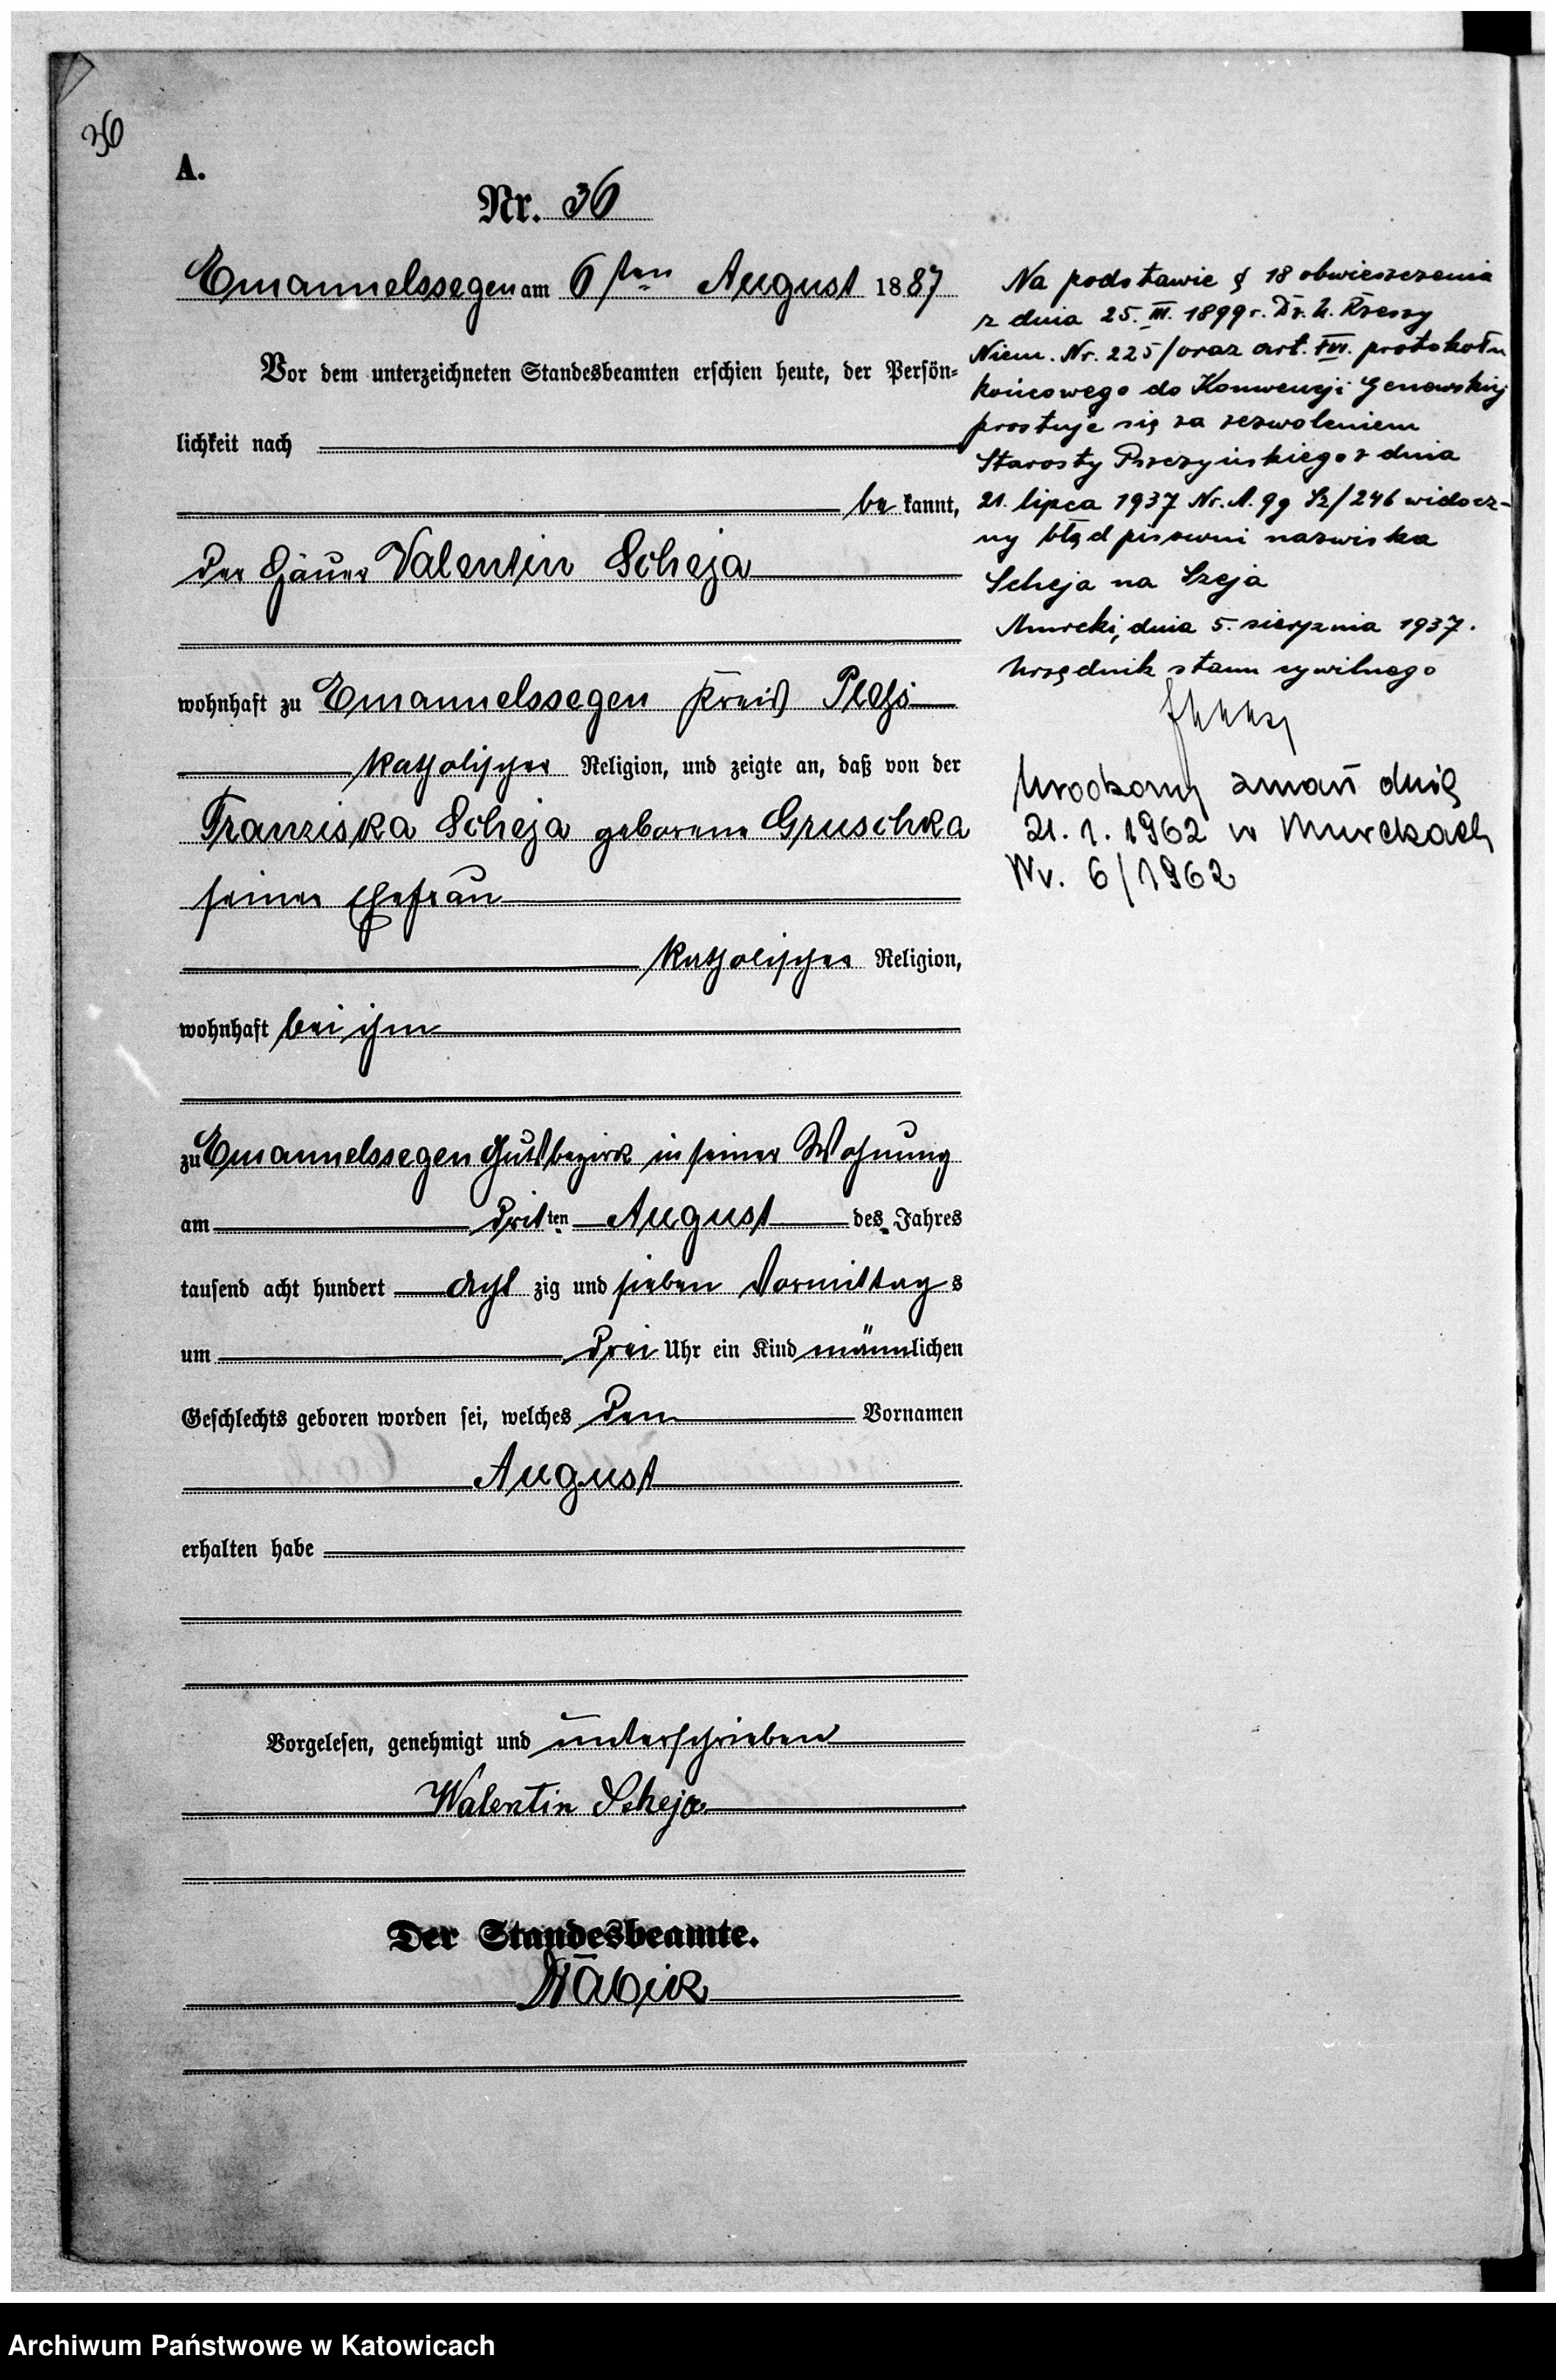 36
A.
Nr. 36
Emanuelssegen am 6ten August 1887
Vor dem unterzeichneten Standesbeamten erschien heute, der Persön-
lichkeit nach
bekannt,
der Häuer Valentin Scheja
wohnhaft zu Emanuelssegen Kreis Pleß
katholischer Religion, und zeigte an, daß von der
Franziska Scheja geborene Gruschka
seiner Ehefrau
katholischer Religion,
wohnhaft bei ihm
zu Emanuelssegen Gutsbezirk in seiner Wohnung
am dritten August des Jahres
tausend acht hundert acht zig und sieben Vormittags
um drei Uhr ein Kind männlichen
Geschlechts geboren worden sei, welches den Vornamen
August
erhalten habe
Vorgelesen, genehmigt und unterschrieben
Walentin Scheja
Der Standesbeamte.
Na podstawie § 18 obwieszczenia
z dnia 25. III. 1899 r. Dz. U. Rzeszy
Niem. Nr. 225/oraz art. protokołu
końcowego do Konwencji Genewskiej
prostuje się za zezwoleniem
Starosty Pszczyńskiego z dnia
21. lipca 1937 Nr. A. 9g Sz/246 widocz-
ny błąd pisowni nazwiska
Scheja na Szeja
Murcki, dnia 5. sierpnia 1937.
Urzędnik stanu cywilnego
Urodzony zmarł dnia
21. 1. 1962 w Murckach
Nr. 6/1962
Archiwum Państwowe w Katowicach